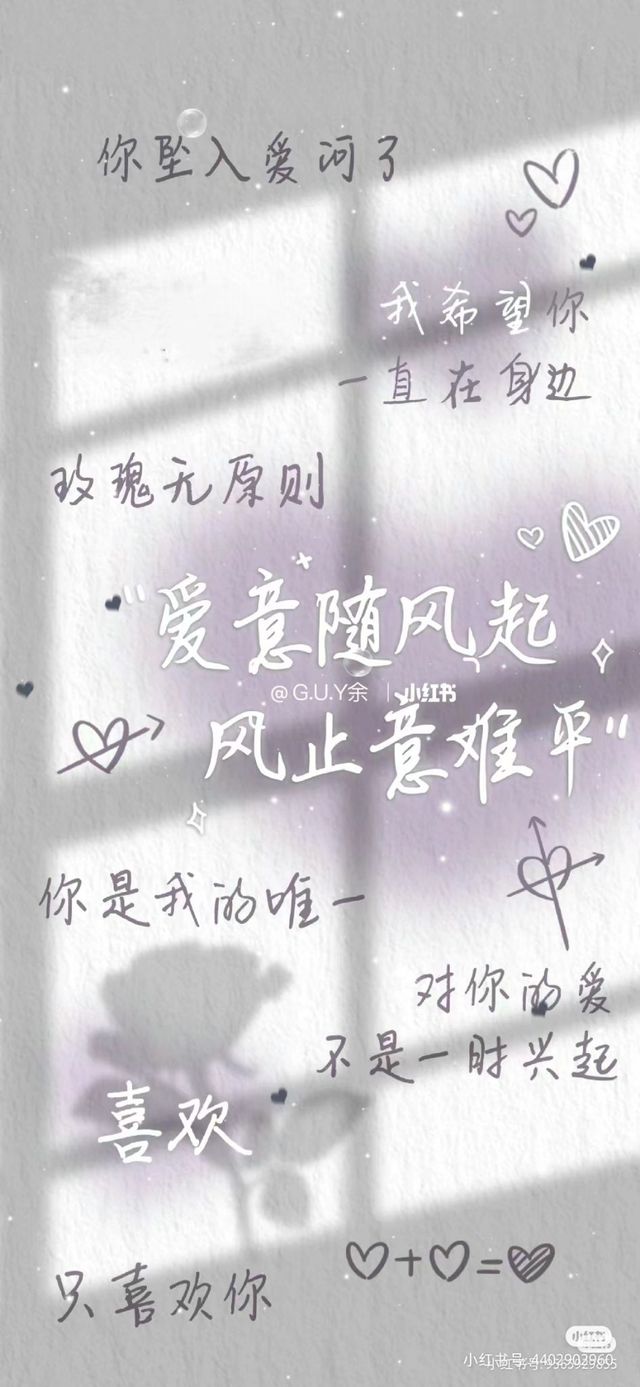 你坠入爱河了
我希望你
一直在身边
玫瑰无原则
"爱意随风起
@G.U.Y余 | 小红书
风止意难平"
你是我的唯一
对你的爱
不是一时兴起
喜欢
只喜欢你
♡+♡=♥
小红书
小红书号: 4402902960